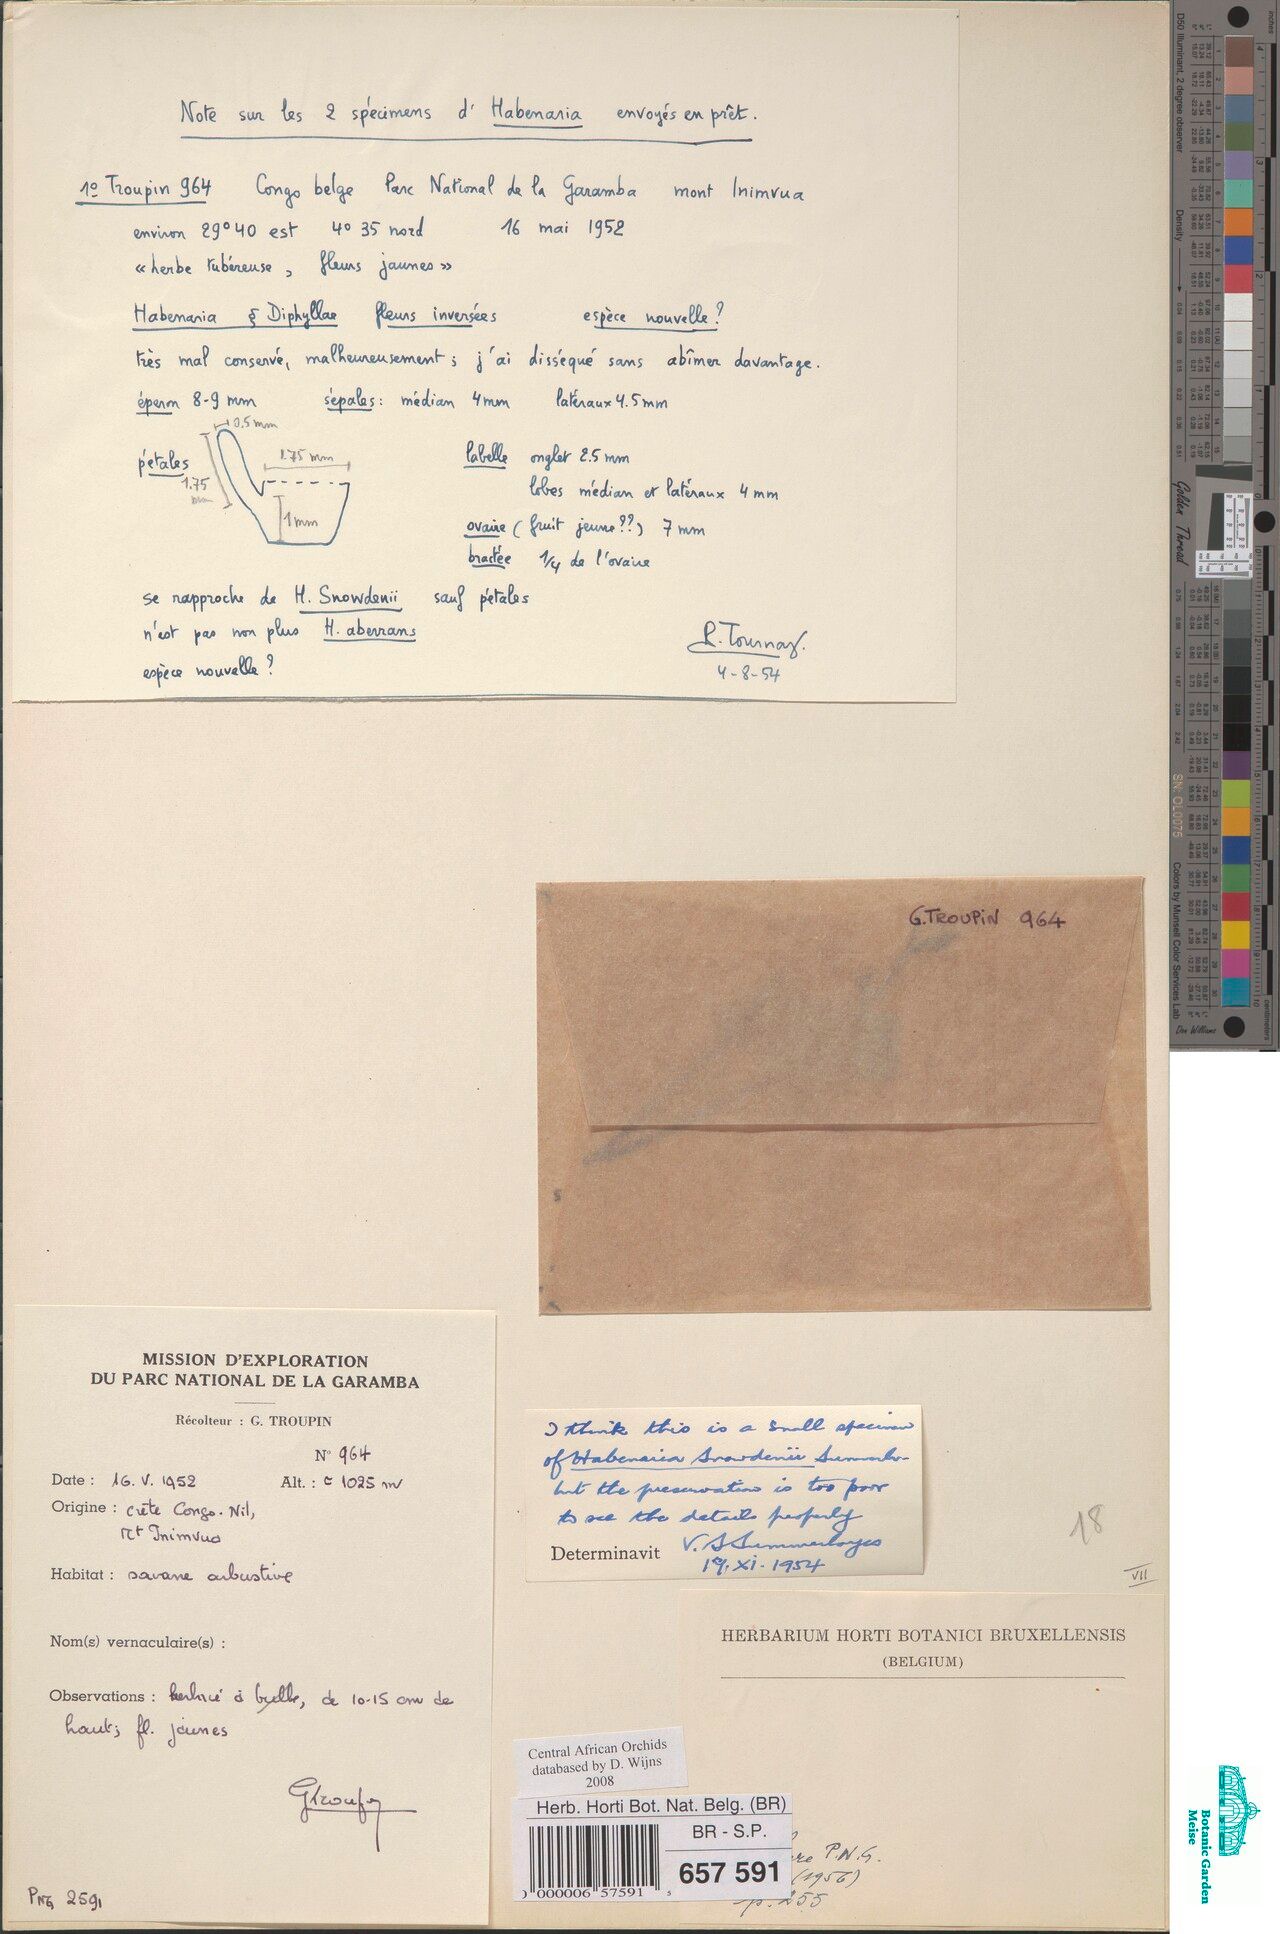 Note sur les 2 spécimens d'Habenaria envoyés en prêt.
1º Troupin 964 Congo belge Parc National de la Garamba mont Inimvua
environ 29º40 est 4º 35 nord 16 mai 1952
«herbe tubéreuse, fleurs jaunes»
Habenaria § Diphyllae fleurs inversées espèce nouvelle?
très mal conservé, malheureusement; j'ai disséqué sans abîmer davantage.
éperon 8-9 mm sépales: médian 4mm latéraux 4.5mm
0.5mm
pétales
1.75 mm
1.75
mm
1mm
labelle onglet 2.5 mm
lobes médian et latéraux 4 mm
ovaire (fruit jeune??) 7 mm
bractée 1/4 de l'ovaire
se rapproche de H. Snowdenii sauf pétales
n'est pas non plus H. aberrans
espèce nouvelle?
R. Tournay.
4-8-54
G.TROUPIN 964
MISSION D'EXPLORATION
DU PARC NATIONAL DE LA GARAMBA
Récolteur : G. TROUPIN
N° 964
Date : 16. V. 1952 Alt. : c 1025 m
Origine : crête Congo-Nil,
Mt Inimvua
Habitat : savane arbustive
Nom(s) vernaculaire(s) :
Observations : herbacé à bulbe, de 10-15 cm de
haut; fl. jaunes
GTroupin
PNG 2591
I think this is a small specimen
of Habenaria Snowdenii Summerh.
but the preservation is too poor
to see the details properly
Determinavit V. S. Summerhayes
19. XI. 1954
18
VII
HERBARIUM HORTI BOTANICI BRUXELLENSIS
(BELGIUM)
Central African Orchids
databased by D. Wijns
2008
Herb. Horti Bot. Nat. Belg. (BR)
BR - S.P.
657 591
0 000006 57591 5
P.N.G.
(1956)
p. 255
D50 Illuminant, 2 degree observer
Density
Golden Thread
SN: OL0075
Colors by Munsell Color Services Lab
Don Williams
inches
centimeters
Botanic Garden
Meise